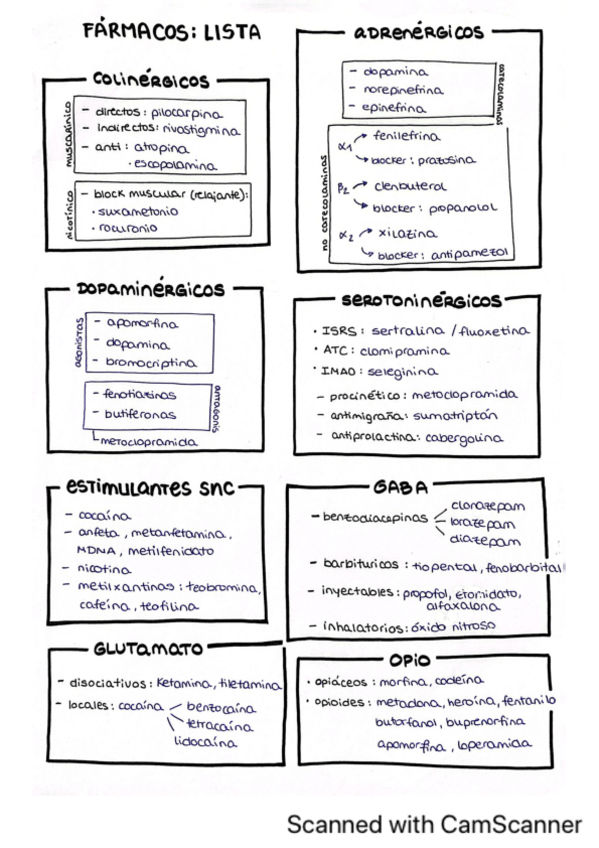 FÁRMACOS: LISTA
COLINÉRGICOS
muscarínico
- directos: pilocarpina
- indirectos: rivastigmina
- anti: atropina
· escopolamina
nicotínico
- block muscular (relajante):
· suxametonio
· rocuronio
ADRENÉRGICOS
catecolaminas
- dopamina
- norepinefrina
- epinefrina
no catecolaminas
α1 fenilefrina
blocker: prazosina
β2 clenbuterol
blocker: propanolol
α2 xilazina
blocker: antipamezol
DOPAMINÉRGICOS
agonistas
- apomorfina
- dopamina
- bromocriptina
antagonis
- fenotiazinas
- butiferonas
metoclopramida
SEROTONINÉRGICOS
· ISRS: sertralina / fluoxetina
· ATC: clomipramina
· IMAO: seleginina
- procinético: metoclopramida
- antimigraña: sumatriptán
- antiprolactina: cabergolina
ESTIMULANTES SNC
- cocaína
- anfeta, metanfetamina,
MDNA, metilfenidato
- nicotina
- metilxantinas: teobromina,
cafeína, teofilina
GABA
- benzodiacepinas clonazepam
lorazepam
diazepam
- barbituricos: tiopental, fenobarbital
- inyectables: propofol, etomidato,
alfaxalona
- inhalatorios: óxido nitroso
GLUTAMATO
- disociativos: Ketamina, tiletamina
- locales: cocaína benzocaína
tetracaína
lidocaína
OPIO
· opiáceos: morfina, codeína
· opioides: metadona, heroína, fentanilo
butorfanol, buprenorfina
apomorfina, loperamida
Scanned with CamScanner